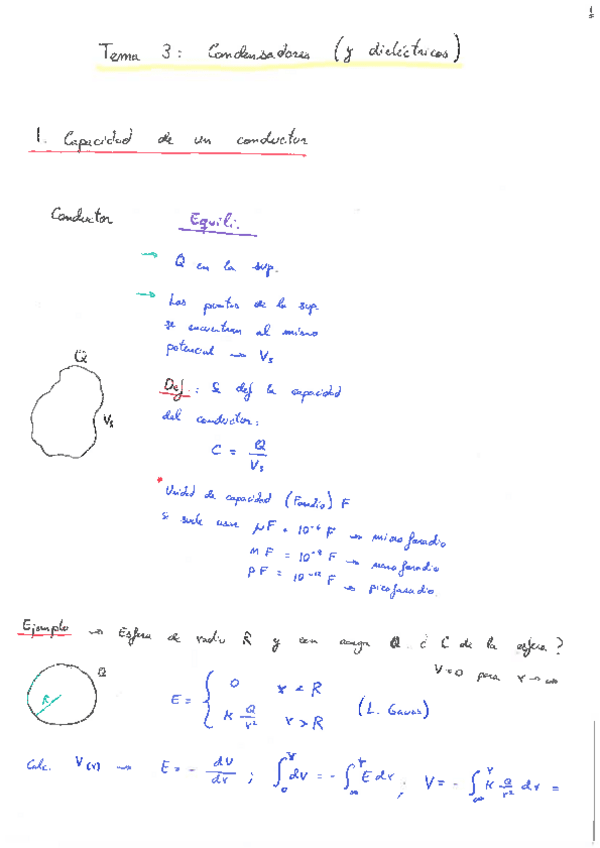 Tema 3: Condensadores (y dieléctricos)
1. Capacidad de un conductor
Conductor Equili.
→ Q en la sup.
→ Los puntos de la sup.
se encuentran al mismo
potencial → Vs
Q
Vs
Def.: Se def la capacidad
del conductor:
C = Q/Vs
• Unidad de capacidad (Faradio) F
Se suele usar μF = 10⁻⁶ F → microfaradio
nF = 10⁻⁹ F → nanofaradio
pF = 10⁻¹² F → picofaradio
Ejemplo → Esfera de radio R y con carga Q. ¿ C de la esfera?
V=0 para r→∞
Q
R
E = { 0 r < R
K Q/r² r > R
(L. Gauss)
Calc. V(r) → E = - dV/dr ; ∫₀^r dV = - ∫_∞^r E dr ; V = - ∫_∞^r K Q/r² dr =